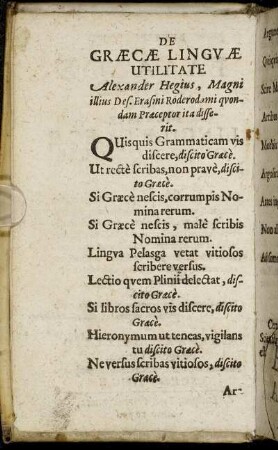 DE
GRÆCÆ LINGVÆ
UTILITATE
Alexander Hegius, Magni
illius Des. Erasmi Roderodami qvon-
dam Præceptor ita disse-
rit.
QUisquis Grammaticam vis
discere, discito Græcè.
Ut rectè scribas, non pravè, disci-
to Græcè.
Si Græcè nescis, corrumpis No-
mina rerum.
Si Græcè nescis, malè scribis
Nomina rerum.
Lingva Pelasga vetat vitiosos
scribere versus.
Lectio qvem Plinii delectat, dis-
cito Græcè.
Si libros sacros vis discere, discito
Græcè.
Hieronymum ut teneas, vigilans
tu discito Græcè.
Ne versus scribas vitiosos, discito
Græcè.
Ar-